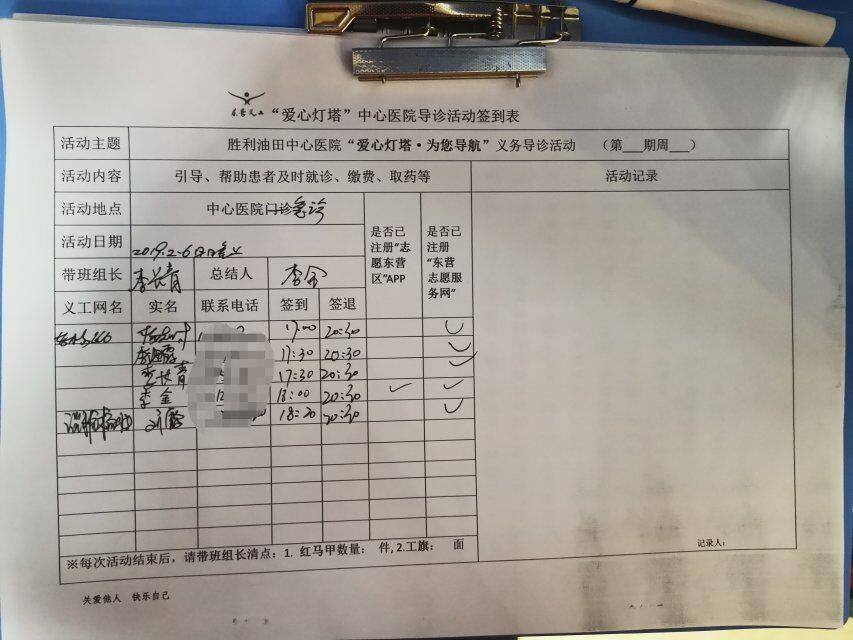 “爱心灯塔”中心医院导诊活动签到表
活动主题 胜利油田中心医院“爱心灯塔·为您导航”义务导诊活动 （第___期周___）
活动内容 引导、帮助患者及时就诊、缴费、取药等 活动记录
活动地点 中心医院门诊急诊
是否已注册“志愿东营区”APP
是否已注册“东营志愿服务网”
活动日期 2019.2.6
带班组长 李长青 总结人 李金
义工网名 实名 联系电话 签到 签退
17:00 20:30
17:30 20:30
李长青 17:30 20:30
李金 18:00 20:30
18:20 20:30
※每次活动结束后，请带班组长清点：1. 红马甲数量： 件, 2.工旗： 面
记录人：
关爱他人 快乐自己